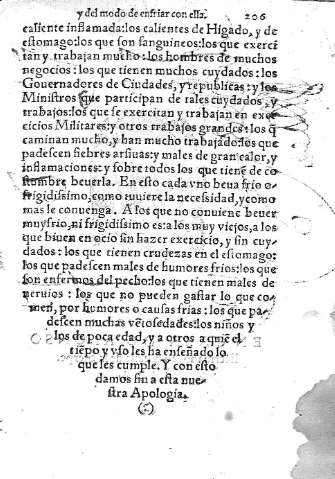 y del modo de enfriar con ella. 206
caliente inflamada: los calientes de Higado, y de
estomago: los que son sanguineos: los que exerci
tan y trabajan mucho: los hombres de muchos
negocios: los que tienen muchos cuydados: los
Gouernadores de Ciudades, y republicas: y los
Ministros que participan de tales cuydados, y
trabajos: los que se exercitan y trabajan en exer
cicios Militares: y otros trabajos grandes: los q̃
caminan mucho, y han mucho trabajado: los que
padescen fiebres arsiuas: y males de gran calor, y
inflamaciones: y sobre todos los que tienē de co
stumbre beuerla. En esto cada vno beua frio o
frigidissimo, como tuuiere la necessidad, y como
mas le conuenga. A los que no conuiene beuer
muy frio, ni frigidissimo es: a los muy viejos, a los
que biuen en ocio sin hazer exercicio, y sin cuy-
dados: los que tienen crudezas en el estomago:
los que padescen males de humores frios: los que
son enfermos del pecho: los que tienen males de
neruios: los que no pueden gastar lo que co-
men, por humores o causas frias: los que pa-
descen muchas vētosedades: los niños y
los de poca edad, y a otros a quiē el
tiēpo y vso les ha enseñado lo
que les cumple. Y con esto
damos fin a esta nue-
stra Apologia.